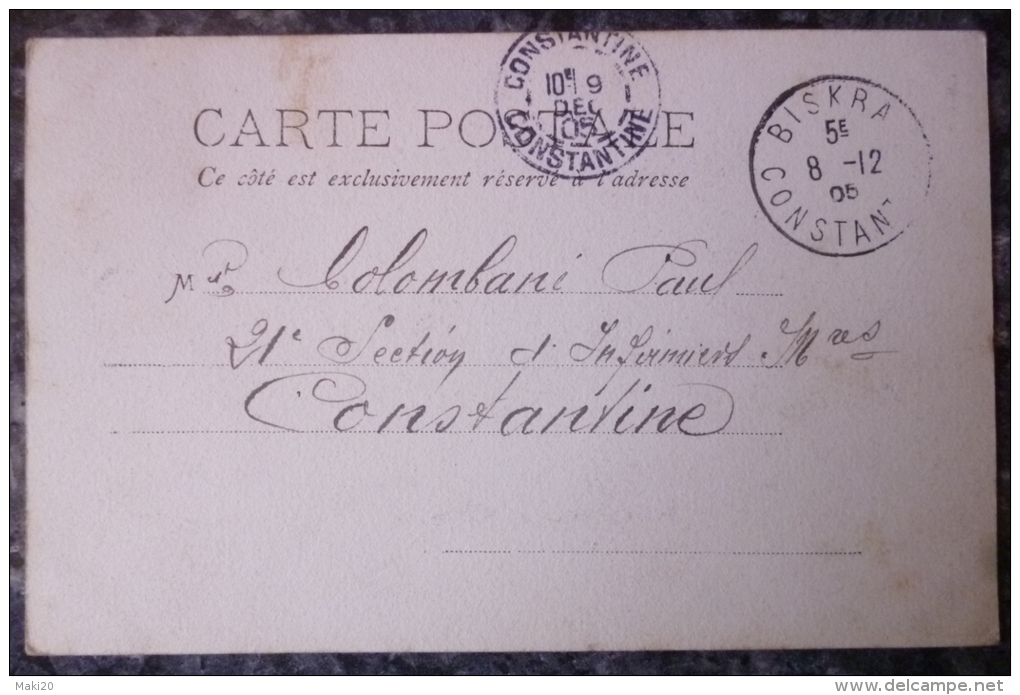 CONSTANTINE
10E 9
DEC
05
CONSTANTINE
BISKRA
5E
8 -12
05
CONSTANT
CARTE POSTALE
Ce côté est exclusivement réservé à l'adresse
Mr Colombani Paul
21e Section d'Infirmiers Mres
Constantine
Maki20
delcampe.net